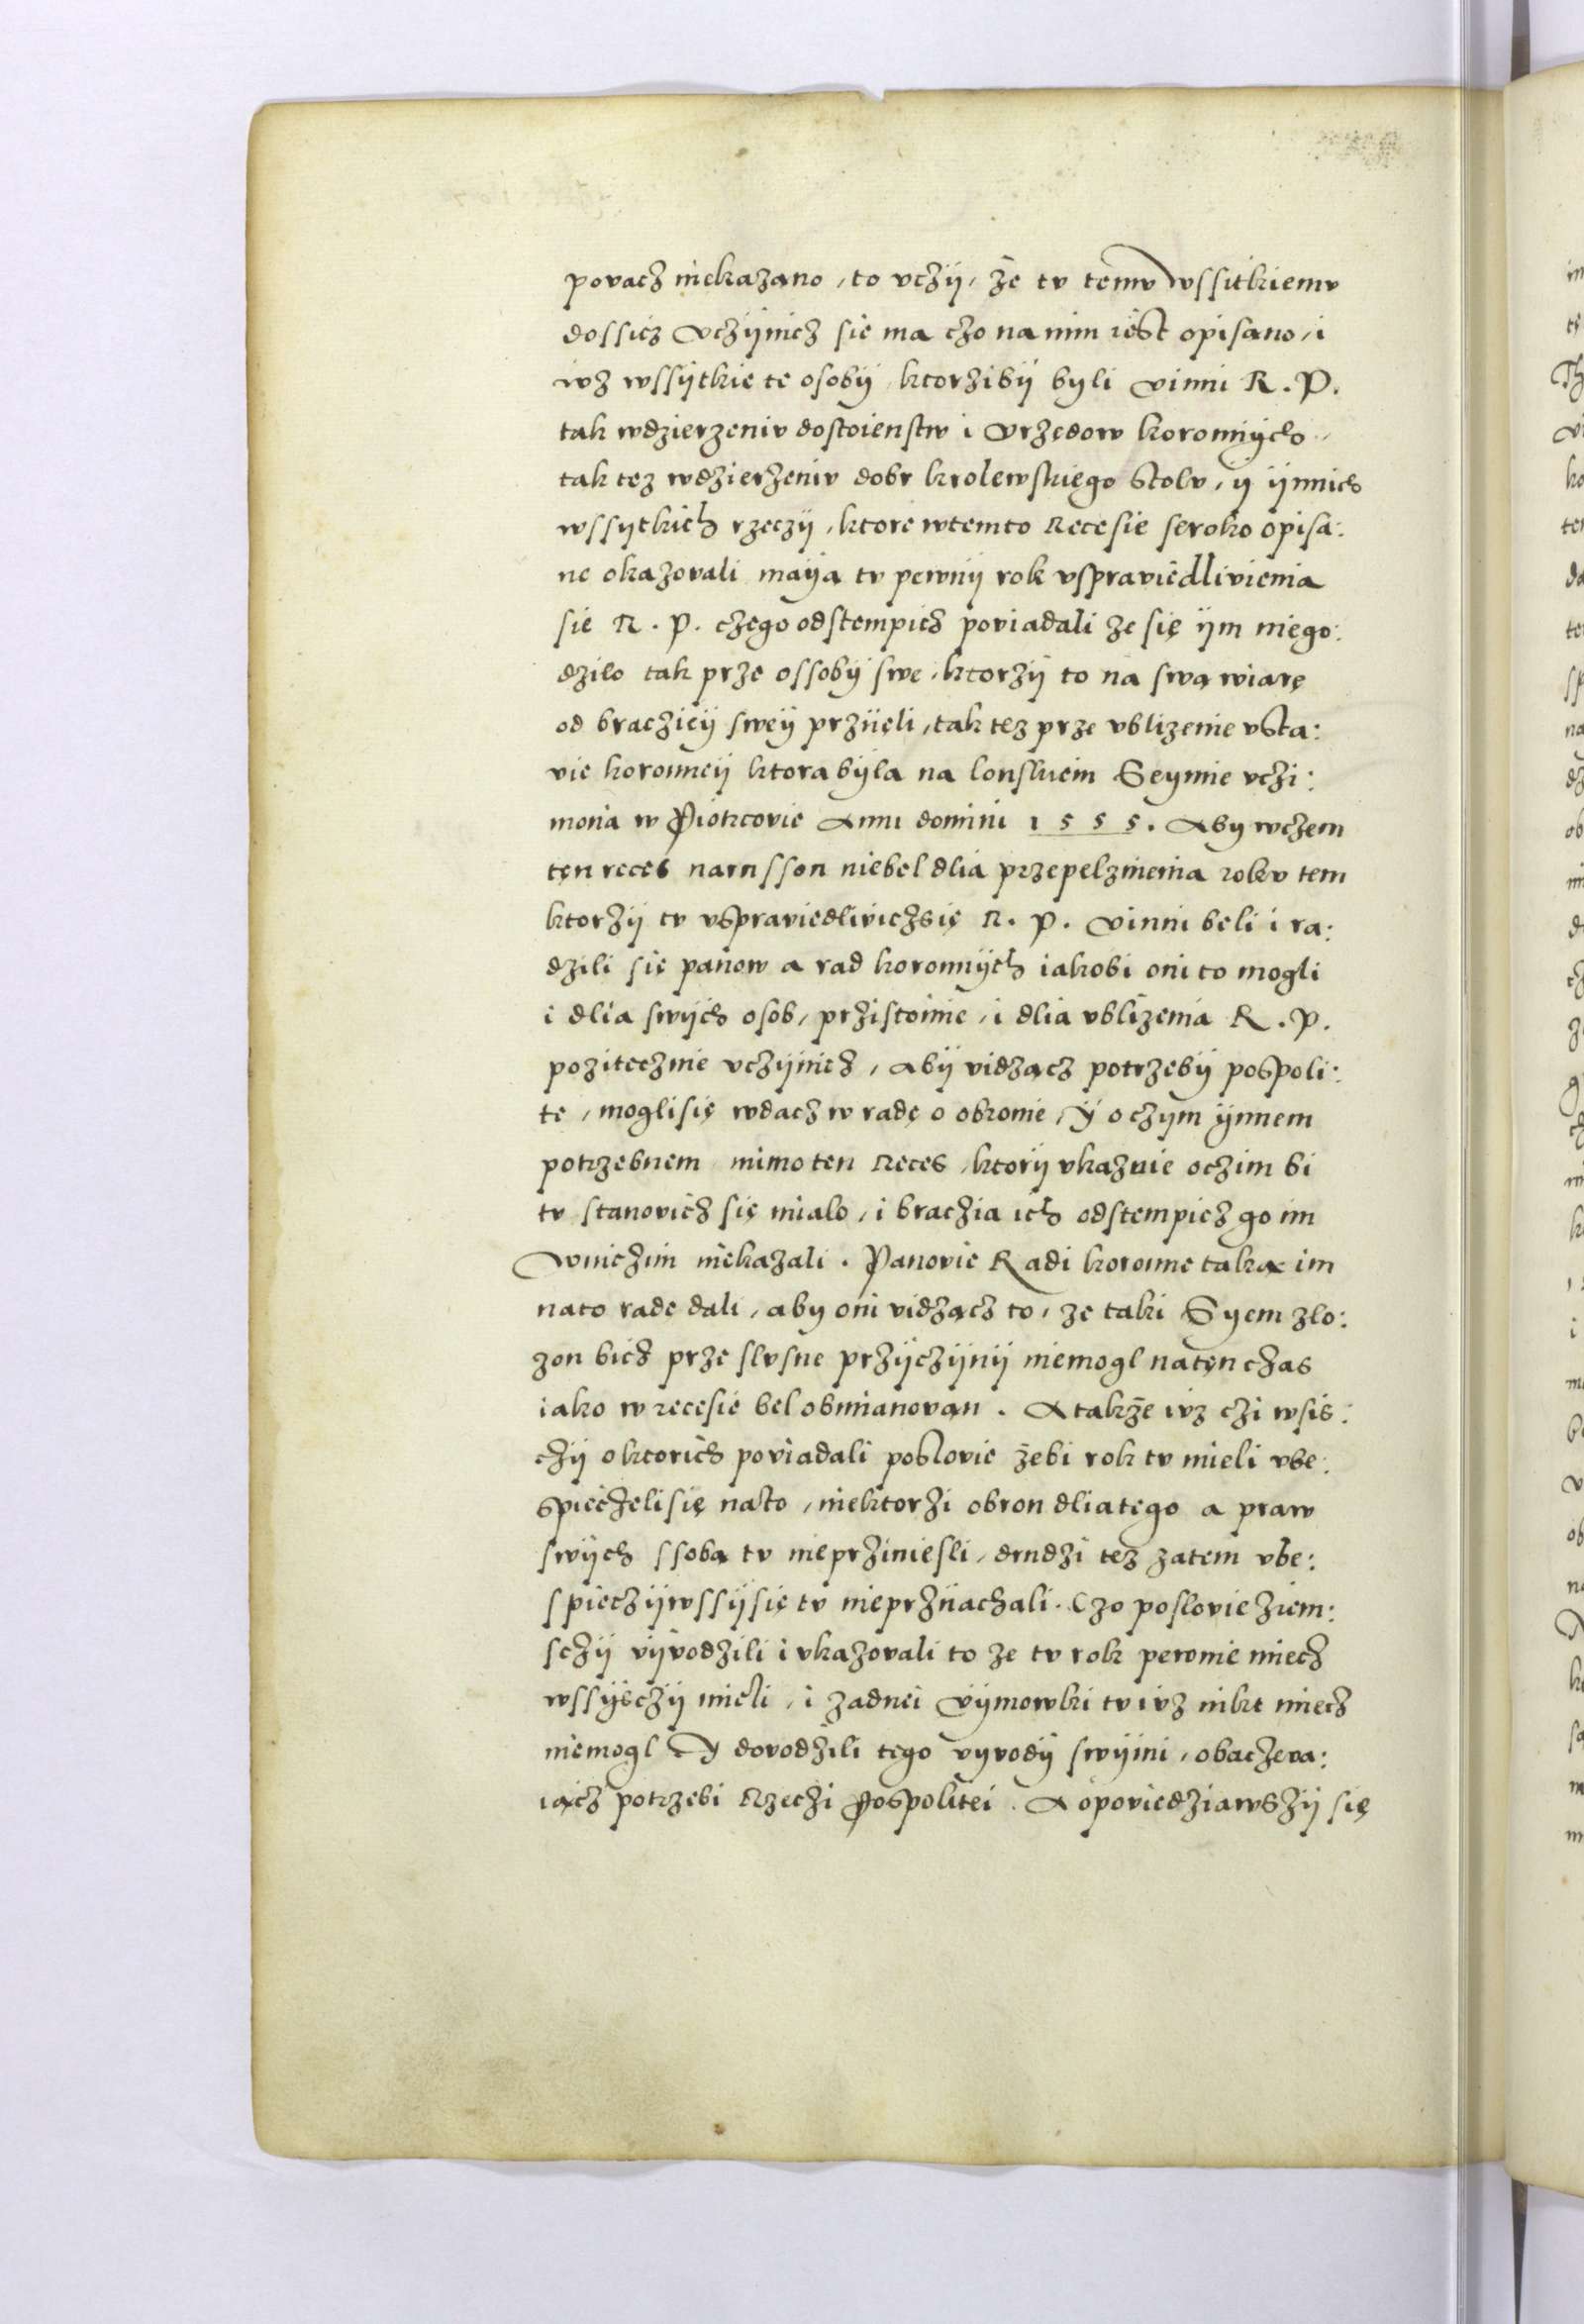 povacz niekazano, to uczÿ, że tu temu wssitkiemu
dossicz Uczÿnicz sie ma czo na nim iest opisano, i
iuz wssÿtkie te osobÿ, ktorzibÿ byli vinni R. P.
tak wdzierzeniu dostoienstw i Urzędow koronnÿch,
tak tez wdzierżeniu dobr krolewskięgo Stolu, y ÿnnich
wssytkich rzeczÿ, ktore wtemto Recesie seroko opisa:
ne okazovali maÿą tu pewnÿ rok uspraviedlivienia
sie R. P. czego odstempicz poviadali ze się ÿm niego:
dzilo tak prze ossobÿ swe, ktorzÿ to na swą wiarę
od braczieÿ sweÿ prziięli, tak tez prze ublizenie usta:
vie koronneÿ ktora bÿla na lonskiem Seymie uczi:
niona w Piotrcovie Anni domini 1555. Aby wczem
tęn reces narusson niebel dlia przepelznienia roku tem
ktorzÿ tu uspraviedliviczsię R. P. vinni beli i ra:
dzili się panow a rad koronnÿch iakobi oni to mogli
i dlia swÿch osob, przistoinie, i dlia ublizenia R. P.
poziteczmie uczÿnicz, abÿ vidzącz potrzebÿ pospoli:
te, moglisię wdacz w radę o obronie, ÿ o czym ÿnnem
potrzebnem mimo ten Reces, ktorÿ ukazuie oczim bi
tu stanovicz się mialo, i brachia ich odstempicz go im
wniczim niekazali. Panovie Radi koronne taką im
nato rade dali, aby oni vidzącz to, ze taki Syem zlo:
zon bicz prze slusne przÿczÿnÿ niemogl natęn czas
iako w recesie bel obmianovan. A także iuz czi wsis:
czÿ oktorich poviadali poslovie żebi rok tu mieli ube:
spieczelisię nato, niektorzi obron dliatego a praw
swÿch ssobą tu nieprziniesli, drudzi tez zatem ube:
spieczÿwssÿsię tu nieprziiachali. Czo poslovie ziem:
sczÿ vÿvodzili i ukazovali to ze tu rok pewnie miecz
wssÿsczÿ mieli, i zadnei Vÿmowki tu iuz nikt miecz
niemogl Y dovodzili tego vyvodÿ swÿmi, obaczeva:
iącz potrzebi Rzeczi Pospolitei. A opoviedziawszÿ się